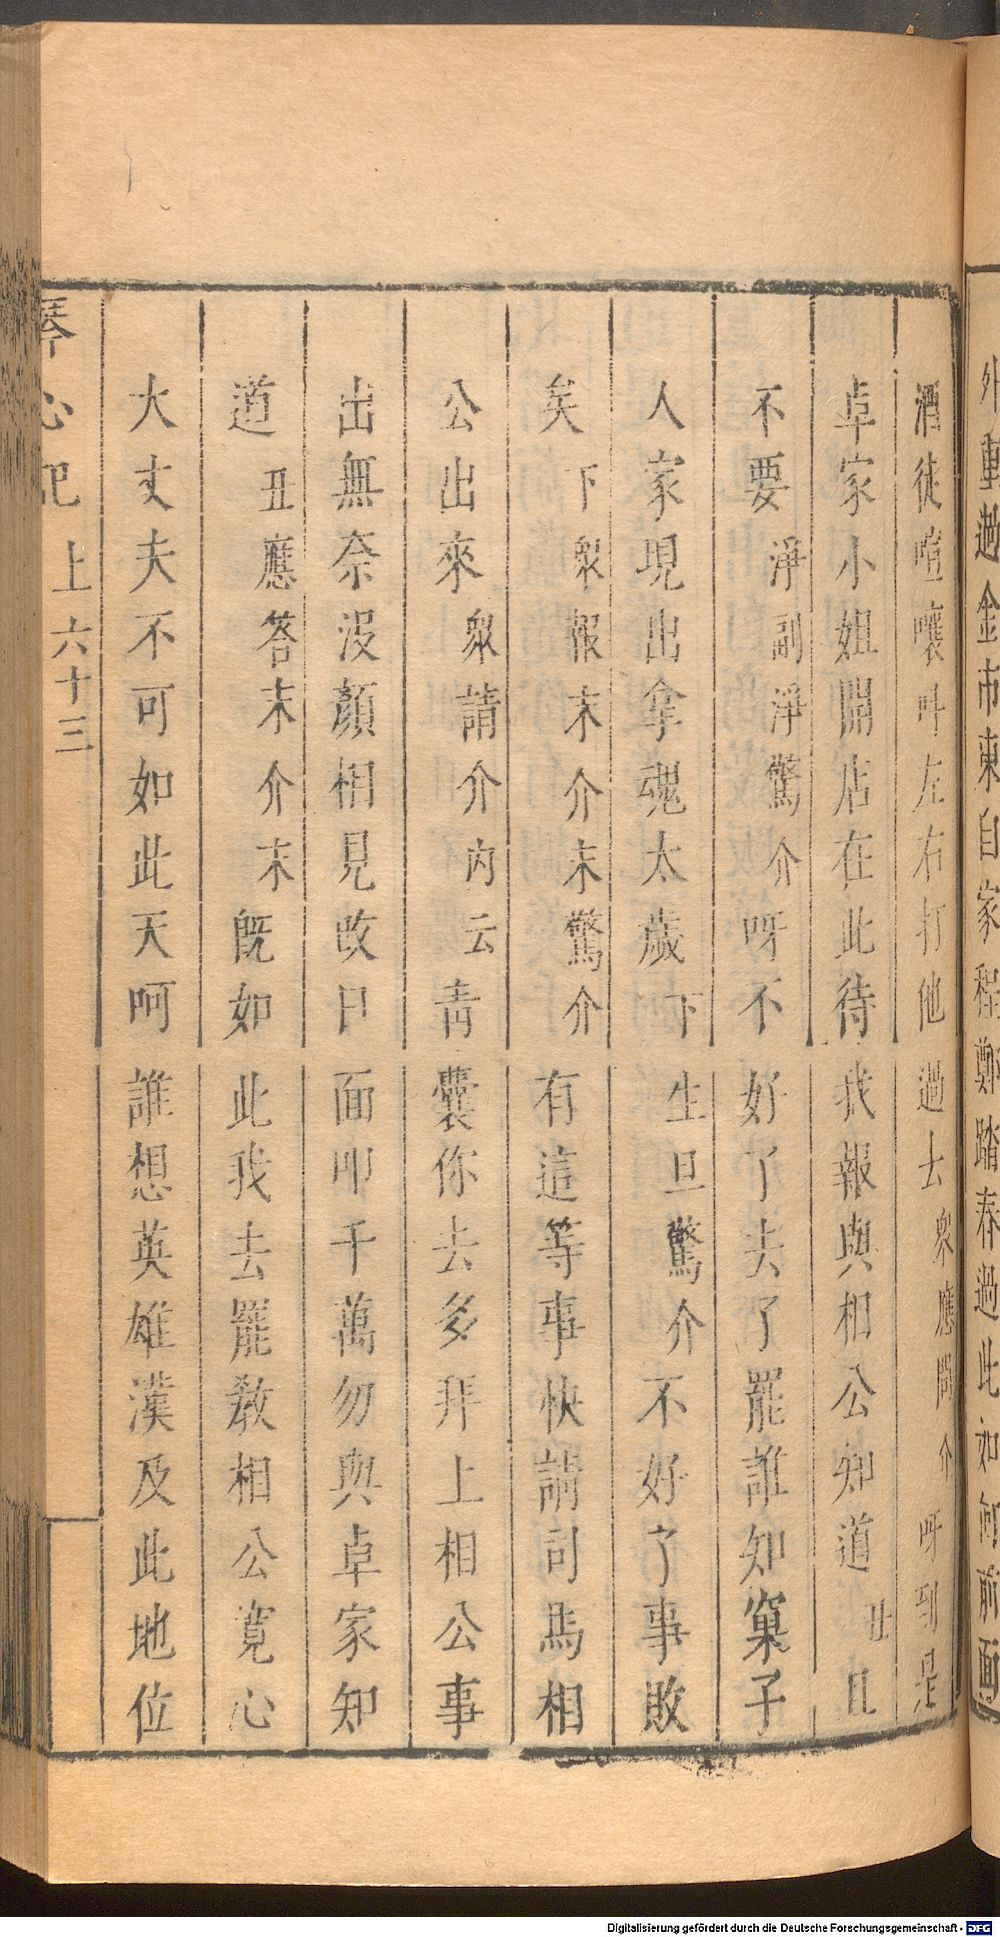 外重過金市東自家程鄭踏春過此如何前面
酒徒喧嚷叫左右打他過去衆應問介呀到是
卓家小姐開店在此待我報與相公知道丑且
不要淨副淨驚介呀不好了去了罷誰知窠子
人家現出拿魂太歲下生旦驚介不好了事敗
矣下衆報末介末驚介有這等事快請司馬相
公出來衆請介内云青囊你去多拜上相公事
出無奈没顏相見改日面叩千萬勿與卓家知
道丑應答末介末既如此我去罷教相公寬心
大丈夫不可如此天呵誰想英雄漢及此地位
琴心記 上 六十三
Digitalisierung gefördert durch die Deutsche Forschungsgemeinschaft - DFG